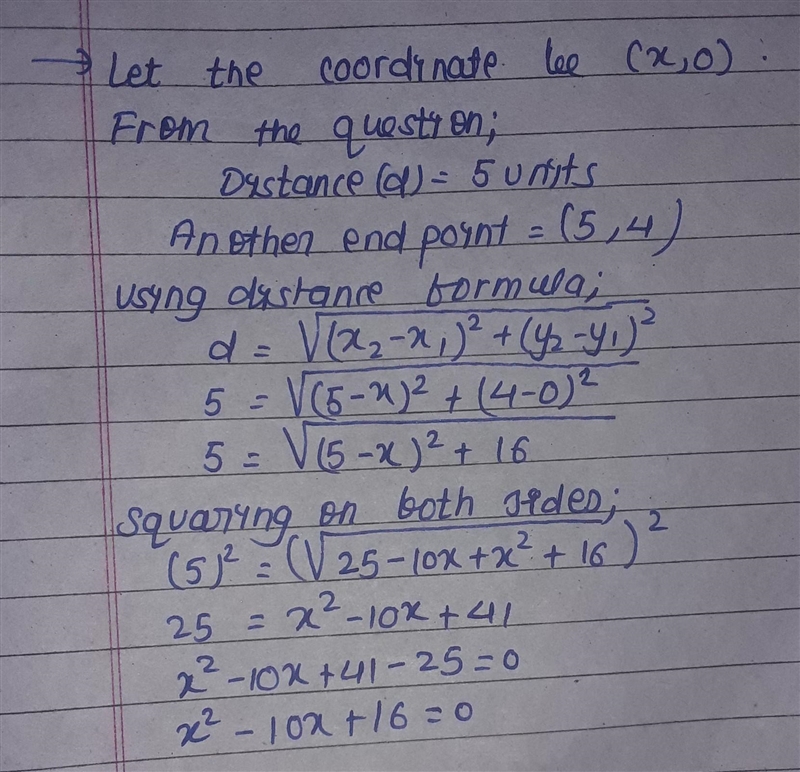 → Let the coordinate be (x,0).
From the question;
Distance (d) = 5 units
Another end point = (5,4)
using distance formula;
d = √(x₂-x₁)² + (y₂-y₁)²
5 = √(5-x)² + (4-0)²
5 = √(5-x)² + 16
squaring on both sides;
(5)² = (√25-10x+x² + 16)²
25 = x²-10x+41
x²-10x+41-25=0
x²-10x+16=0